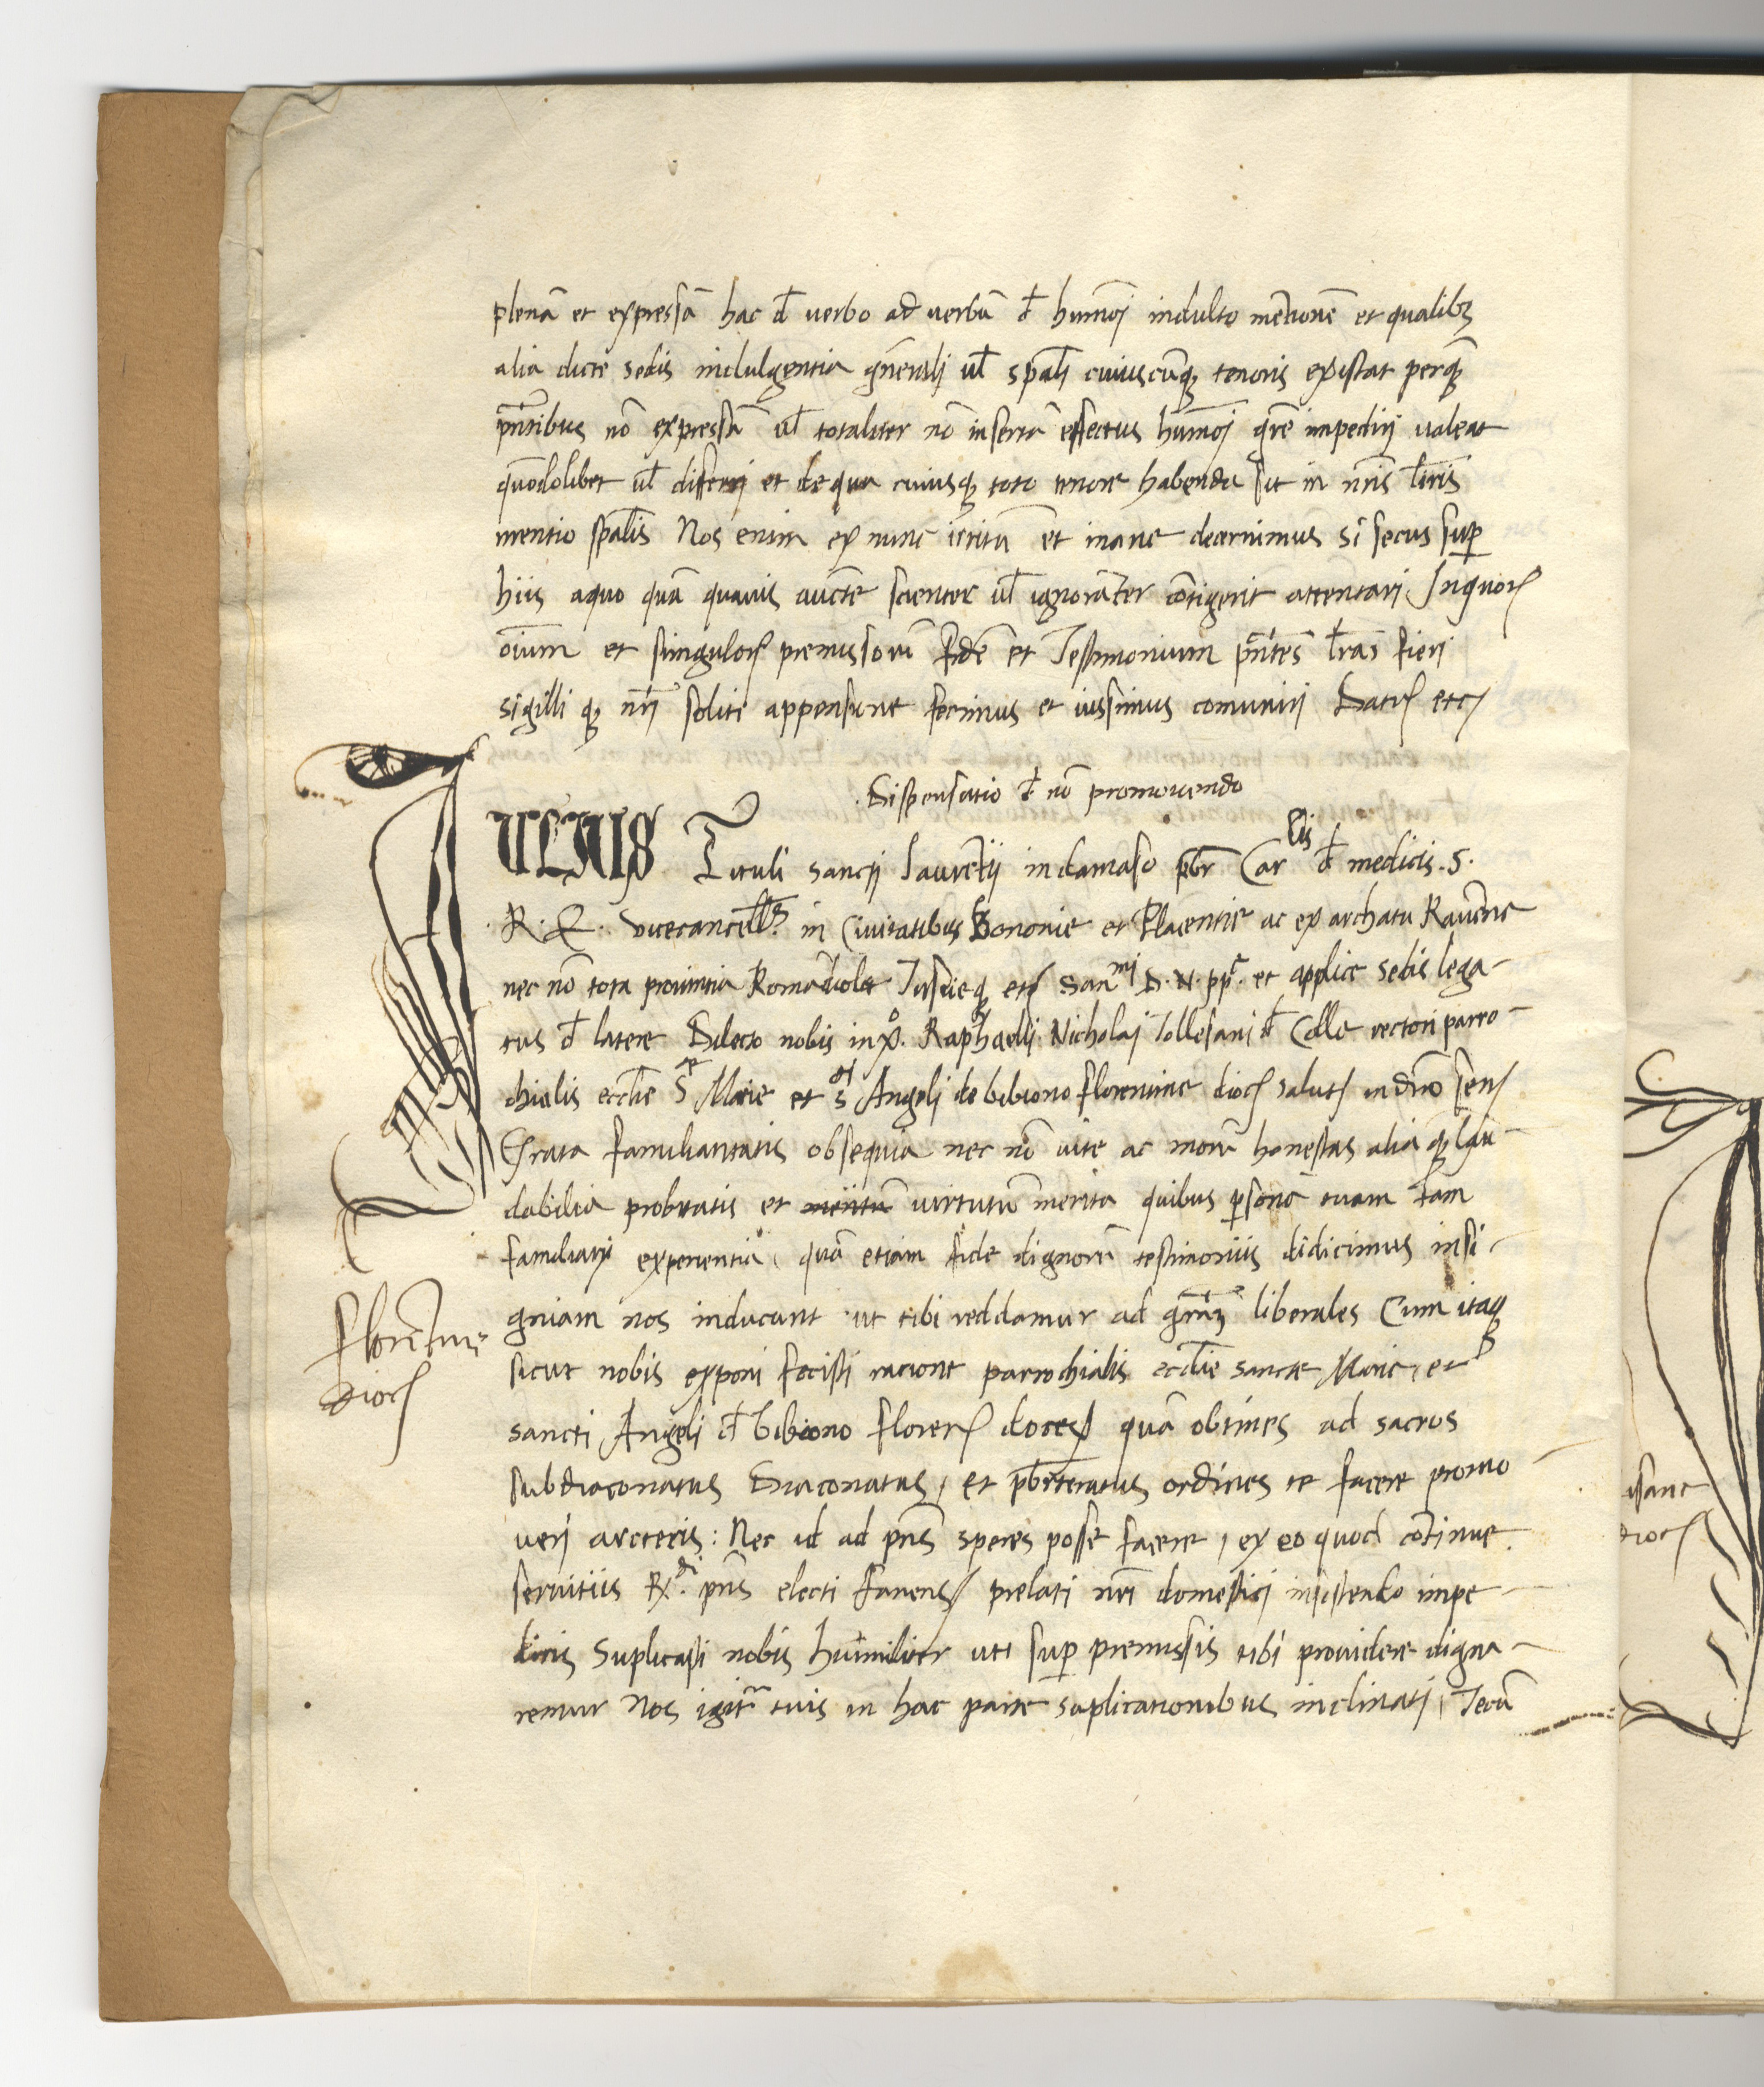 plenā et expressā hac d̄ verbo ad verbū d̄ humōi indulto mētionē et qualibȝ
alia dicte sedis indulgentia gn̄erali ul̄ spāli cuiuscūqȝ tenoris existat perqȝ
pn̄tibus nō expressā ul̄ totaliter nō insertā effectus humōi grē impediri valeat
quōdolibet ul̄ differri et de qua cuiusqȝ toto tenore habenda sit in nr̄is lr̄is
mentio spālis Nos enim ex nunc irritū et inane decernimus si secus sup̄
hiis a quo quā quauis aucte scienter ul̄ ignorāter cōtigerit attentari Inquorꝝ
oīum et singulorꝝ premissorū fidē et Testimonium pn̄tes lr̄as fieri
sigilli qȝ nr̄i soliti appensione fecimus et iussimus comuniri Datꝭ etcꝭ
Dispensatio d̄ nō promouendo
IULIUS Tituli sancti laurētij in damaso pb̄r Carlis d̄ medicis . S .
. R . E . vicecancell̄s in Ciuitatibus Bononie et Placentie ac exarchatu Rauēne
nec nō tota prouintia Romādiole Tuscieqȝ etꝭ Sanmi D . N . pp̄ . et applice sedis lega-
tus d̄ latere Dilecto nobis in xo. Raphaelli Nicholai Tollesani d̄ Colle rectori parro-
chialis ecclīe Ste Marie et sti Angeli de bibiono florentine diocꝭ salutꝭ in dn̄o senꝭ
Grata familiaritatis obsequia nec nō vite ac morū honestas alia qȝ lau-
dabilia probitatis et meritū virtutū merita quibus psonā tuam tam
familiari experientia quā etiam fide dignorū testimoniis didicimus insi-
gniam nos inducunt ut tibi reddamur ad grām liberales Cum itaqȝ
sicut nobis exponi fecisti racione parrochialis ecclīe sancte Marie et
sancti Angeli d̄ bibiono florenꝭ docesꝭ quā obtines ad sacros
subdiaconatus Diaconatus, et pb̄rteratus ordines te facere promo-
ueri arcteris : Nec id ad pn̄s speres posse facere, ex eo quod cōtinue
seruitiis Rdi. pn̄s electi Fanensꝭ prelati nr̄i domestici insistendo impe-
diris Suplicasti nobis humiliter uti sup̄ premissis tibi prouidere digna-
remur Nos igitr̄ tuis in hac parte suplicationibus inclinati, Tecū
florētine
diocꝭ